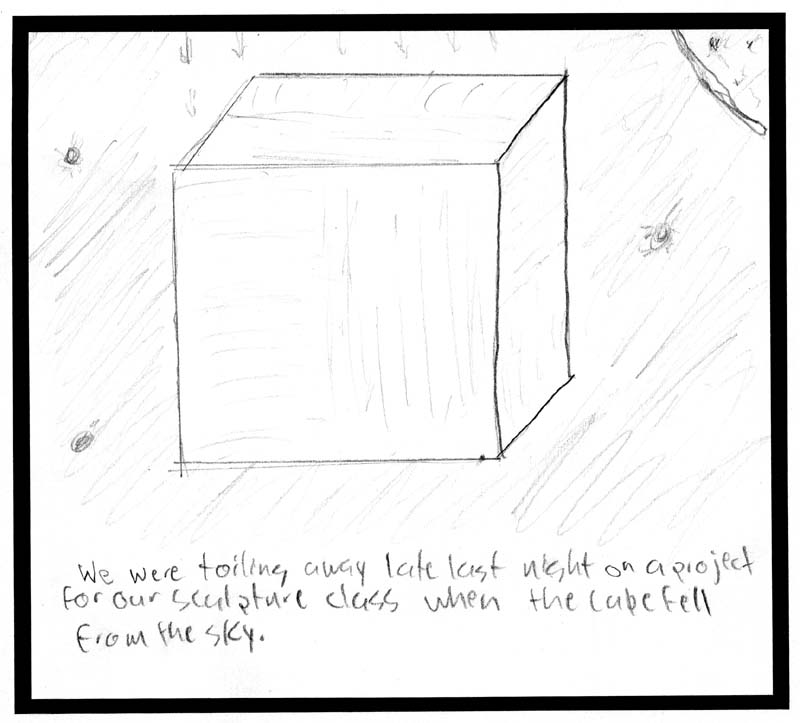 We were toiling away late last night on a project
for our sculpture class when the cube fell
from the sky.